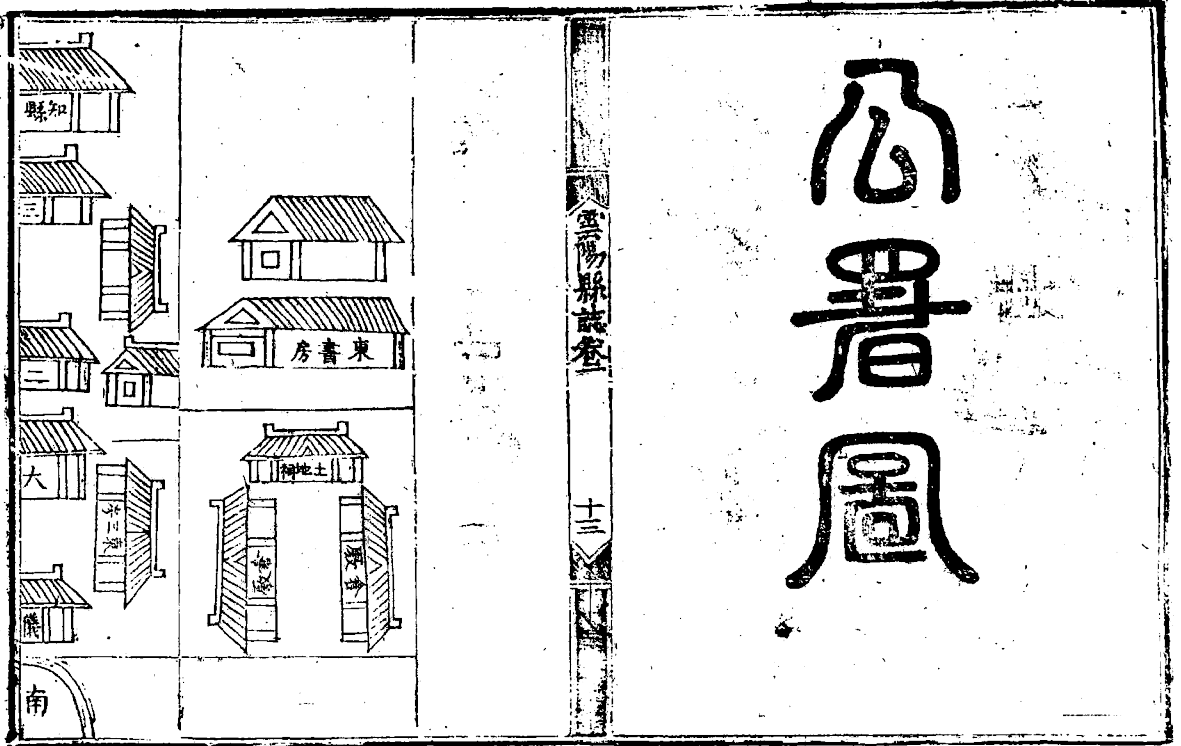 公署圖
雲陽縣誌卷二
十三
東書房
土地祠
知縣
三
二
大
東三考
儀
南